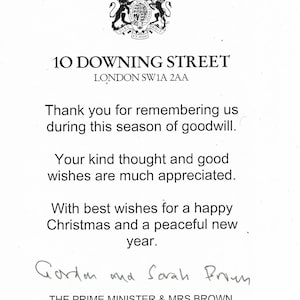 10 DOWNING STREET
LONDON SW1A 2AA
Thank you for remembering us
during this season of goodwill.
Your kind thought and good
wishes are much appreciated.
With best wishes for a happy
Christmas and a peaceful new
year.
Gordon and Sarah Brown
THE PRIME MINISTER & MRS BROWN